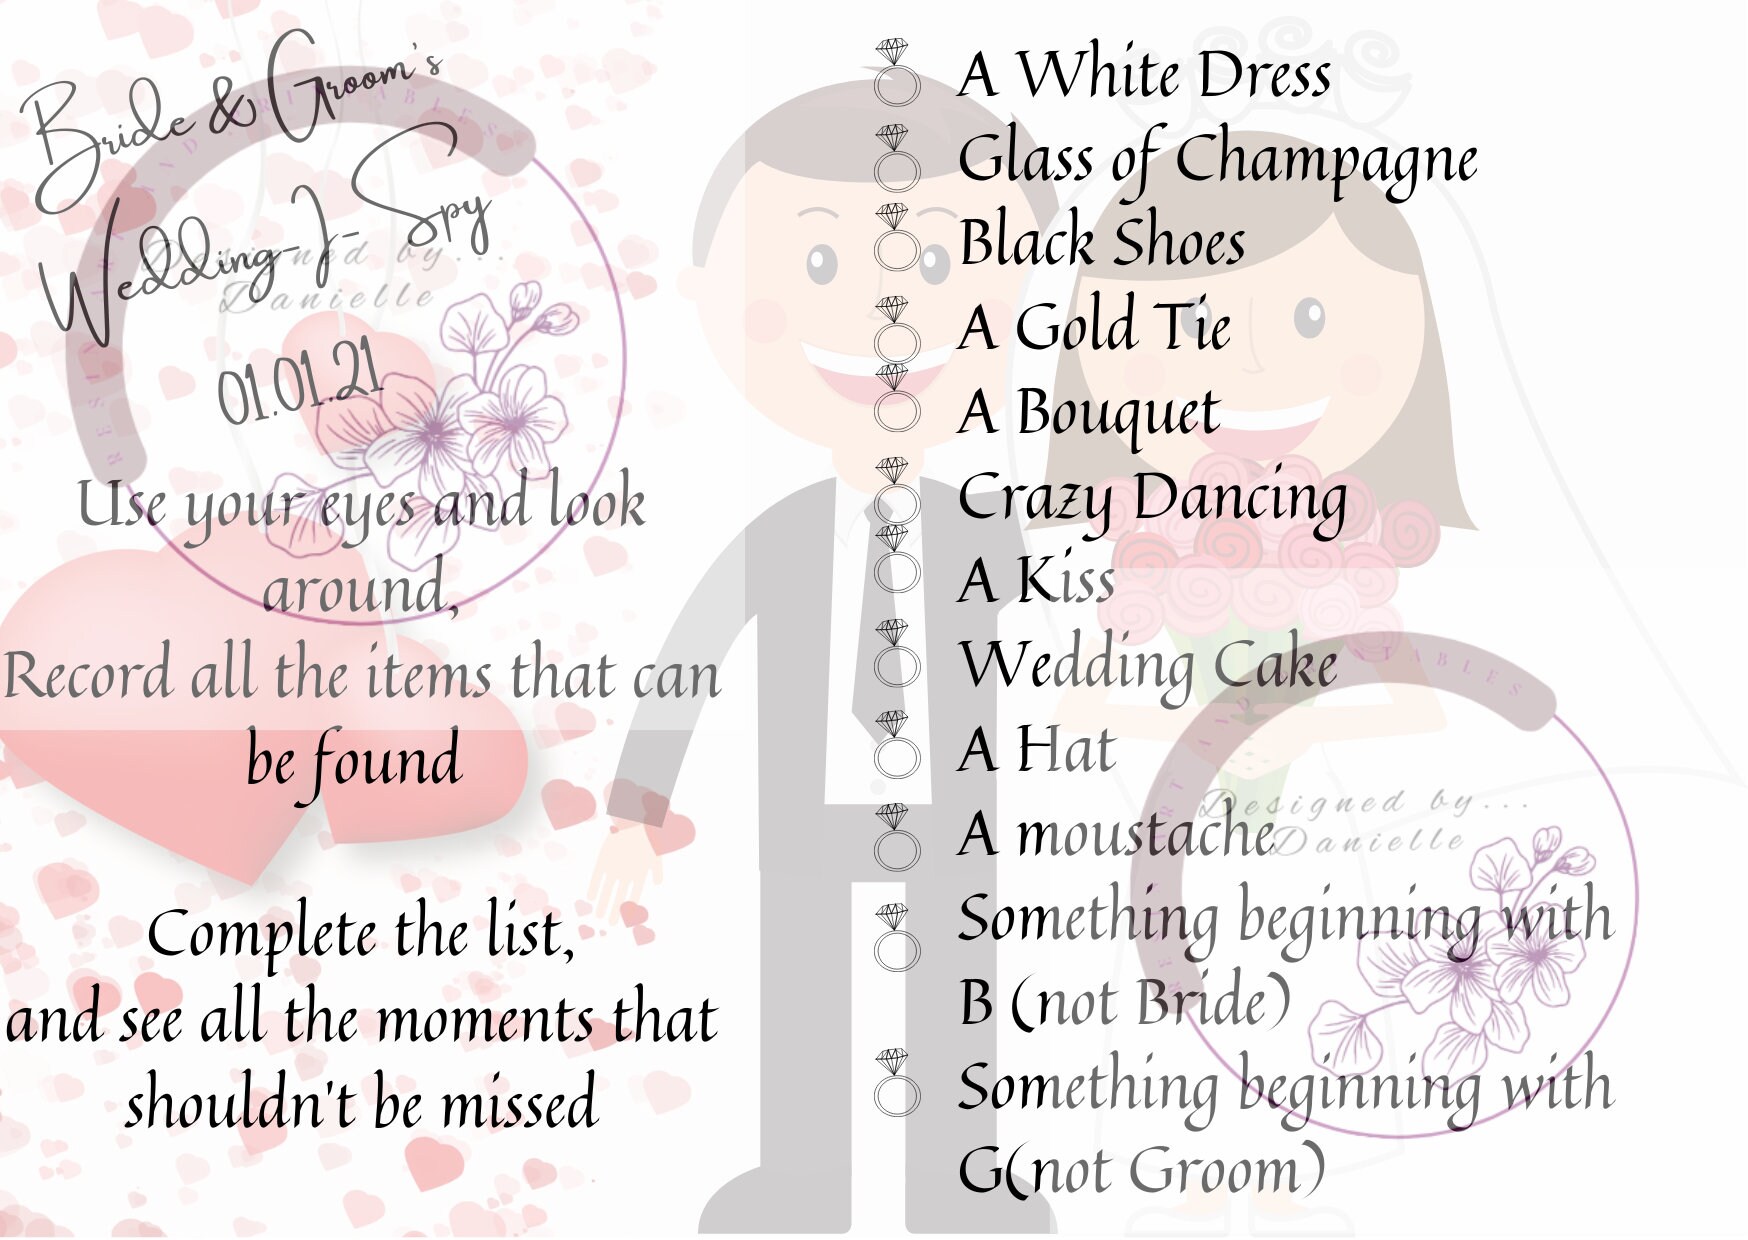 Bride & Groom's
Wedding-I-Spy
01.01.21
Use your eyes and look
around,
Record all the items that can
be found
Complete the list,
and see all the moments that
shouldn't be missed
A White Dress
Glass of Champagne
Black Shoes
A Gold Tie
A Bouquet
Crazy Dancing
A Kiss
Wedding Cake
A Hat
A moustache
Something beginning with
B (not Bride)
Something beginning with
G(not Groom)
Designed by...
Danielle
Designed by...
Danielle